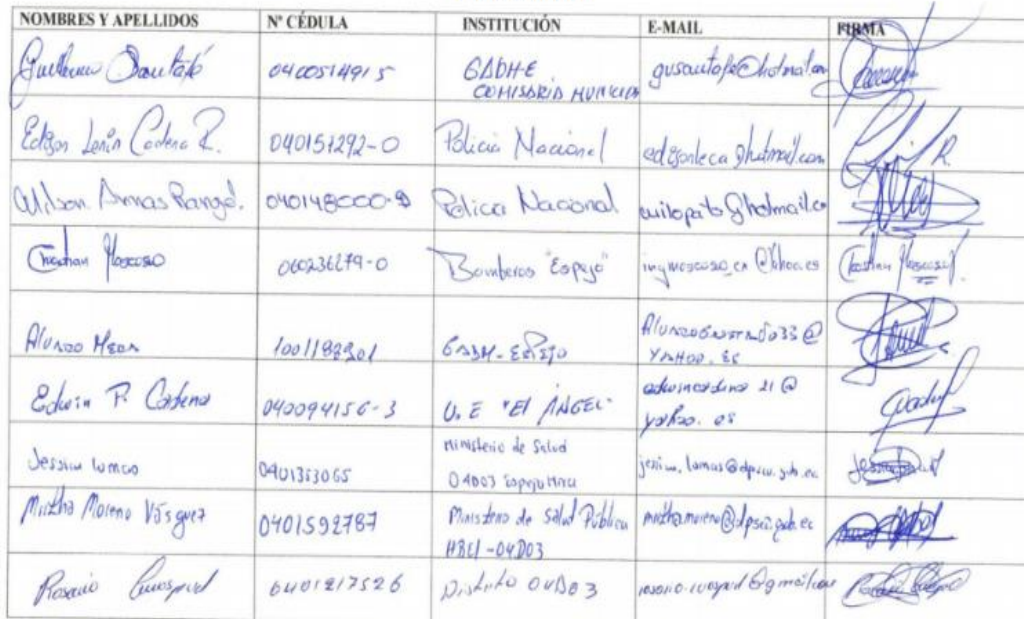 NOMBRES Y APELLIDOS Nº CÉDULA INSTITUCIÓN E-MAIL FIRMA
Guillermo Santafé 0400514915 GADM-E COMISARIA MUNICIPAL gusantafe@hotmail.com
Edison Lenin Cadena R. 040157292-0 Policia Nacional edisonleca@hotmail.com
Wilson Armas Rangel. 040148000-9 Policia Nacional wilopato@hotmail.co
Christian Moscoso 060236279-0 Bomberos "Espejo" ingmoscoso_cr@yahoo.es Christian Moscoso
Alonso Mera GADM-Espejo
YAHOO.ES
Edwin P. Cadena 040094156-3 U.E "El ÁNGEL" edwincadena21@
yahoo.es
Jessica Lomas 0401353065 Ministerio de Salud
04D03 Espejo Mira jessica.lomas@dpscu.gob.ec
Mirtha Moreno Vásquez 0401592787 Ministerio de Salud Pública
HBEl-04D03 mirtha.moreno@dpsci.gob.ec
Rosario Cuaspud 0401217526 Distrito 04D03 rosario.cuaspud@gmail.com